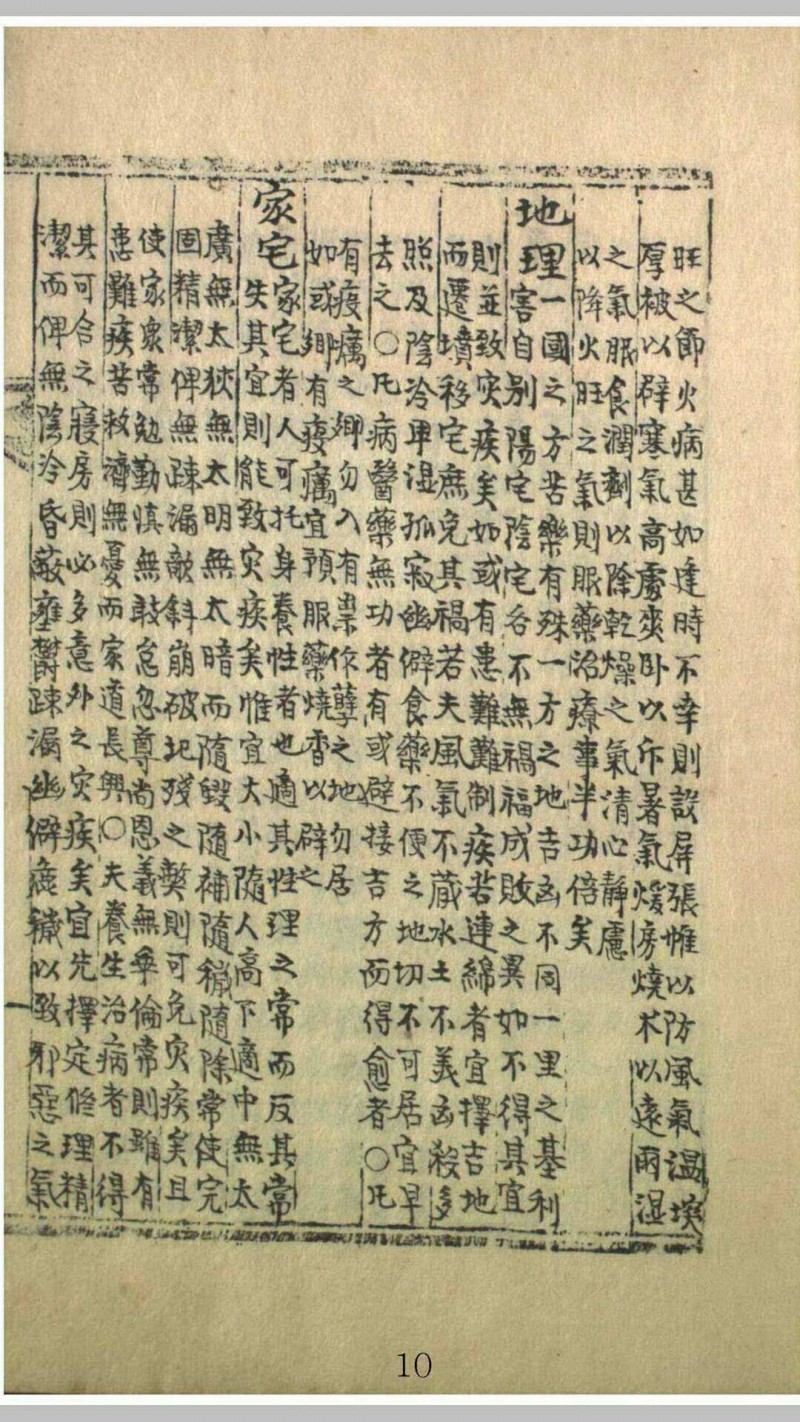 旺之節火病甚如逢時不幸則設屏張帷以防風氣溫堗
厚被以辟寒氣高處爽卧以斥暑氣煖房燒朮以遠雨湿
之氣服食潤劑以除乾燥之氣清心靜慮
以降火旺之氣則服藥治療事半功倍矣
地理一國之方苦樂有殊一方之地吉凶不同一里之基利
害自别陽宅陰宅各不無禍福成敗之異如不得其宜
則並致灾疾矣如或有患難難制疾苦連綿者宜擇吉地
而遷墳移宅庶免其禍若夫風氣不藏水土不義凶殺多
照及陰冷卑湿孤寂幽僻食藥不便之地切不可居宜早
去之〇凡病醫藥無功者有或避接吉方而得愈者〇凡
有疫癘之鄉勿入有祟作孽之地勿居
如或鄉有疫癘宜預服藥燒香以辟之
家宅家宅者人可托身養性者也適其性理之常而反其常
失其宜則能致灾疾矣惟宜大小隨人高下適中無太
廣無太狹無太明無太暗而隨毀隨補隨穢隨除常使完
固精潔俾無疎漏敵斜崩破圮残之弊則可免灾疾矣且
使家衆常勉勤慎無敢怠忽尊尚恩義無乖倫常則雖有
患難疾苦救濟無憂而家道長興〇夫養生治病者不得
其可合之寢房則必多意外之灾疾矣宜先擇定修理精
潔而俾無陰冷昏蔽壅鬱疎漏幽僻䕺穢以致邪惡之氣
10